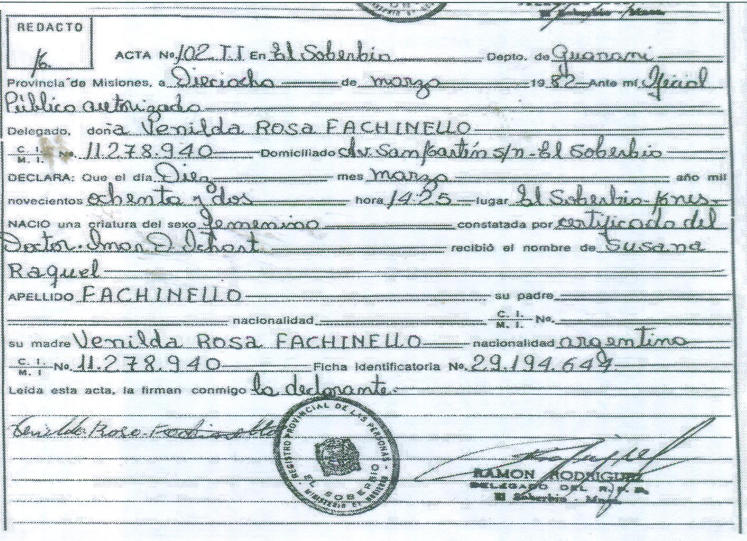 El Soberbio - Mnes.
REDACTO
ACTA No. 102 T. I En El Soberbio Depto. de Guaraní
Provincia de Misiones, a Dieciocho de marzo 1982 Ante mí Oficial
Público autorizado
Delegado, doña Venilda ROSA FACHINELLO
C. I. M. I. No. 11.278.940 Domiciliado Av. San Martín s/n - El Soberbio
DECLARA: Que el día Diez mes marzo año mil
novecientos ochenta y dos hora 14:25 lugar El Soberbio Mnes.
NACIO una criatura del sexo femenino constatada por certificado del
Doctor recibió el nombre de Susana
Raquel
APELLIDO FACHINELLO su padre
nacionalidad C. I. M. I. No.
su madre Venilda ROSA FACHINELLO nacionalidad argentina
C. I. M. I No. 11.278.940 Ficha Identificatoria No. 29.194.644
Leída esta acta, la firman conmigo la declarante.
Venilda Rosa Fachinello
REGISTRO PROVINCIAL DE LAS PERSONAS
EL SOBERBIO
MINISTERIO DE GOBIERNO
RAMON RODRIGUEZ
DELEGADO DEL R. P. P.
El Soberbio - Mnes.